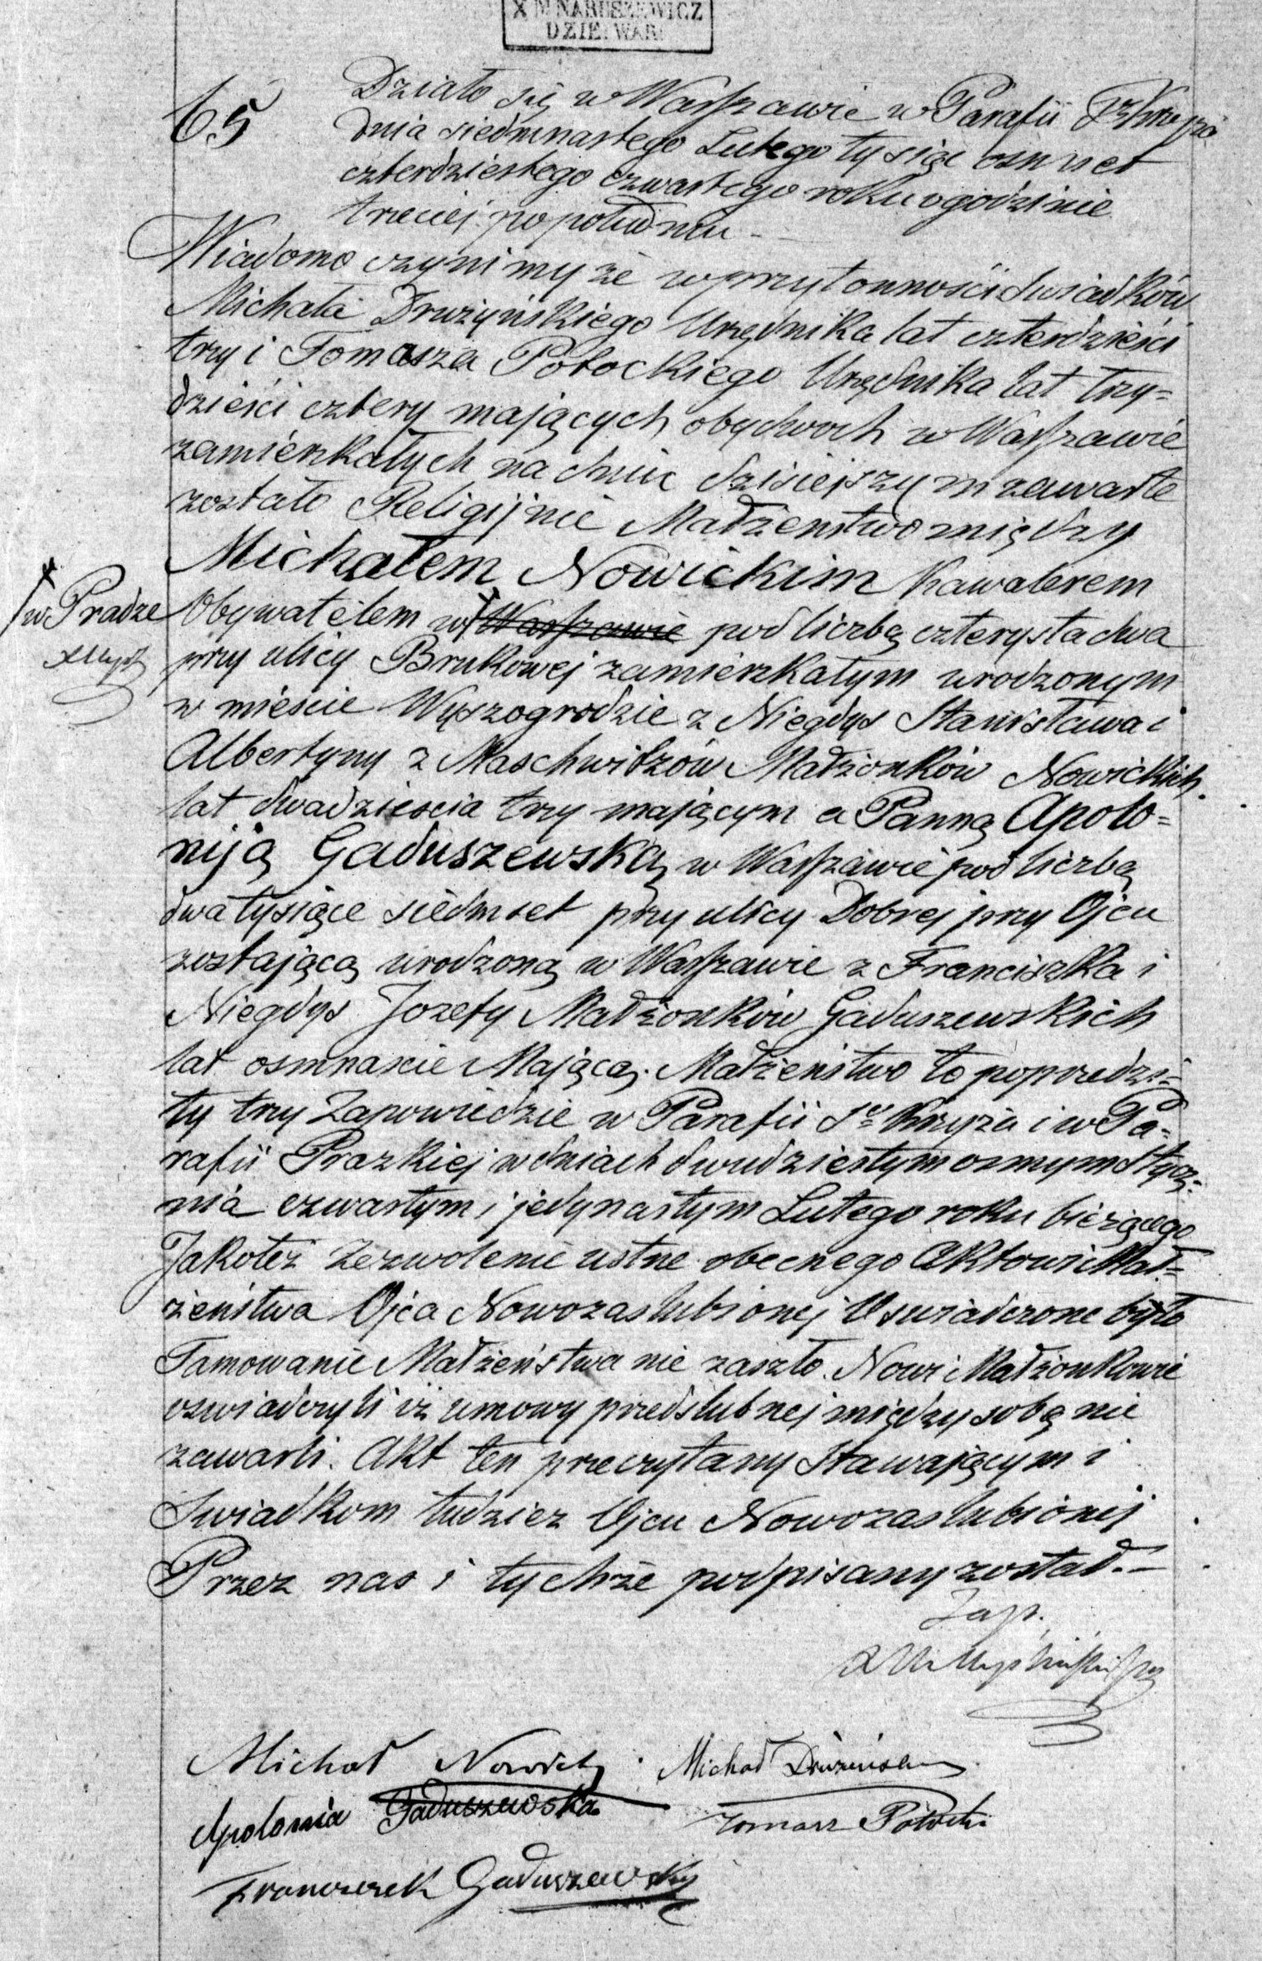 X M NARUSZEWICZ
DZIE. WAR.
65
Działo się w Warszawie w Parafii Sgo Krzyża
dnia siedmnastego Lutego tysiąc osmset
czterdziestego czwartego roku o godzinie
trzeciej po południu _
Wiadomo czynimy że w przytomności świadków
Michała Drużyńskiego Urzędnika lat czterdzieści
trzy i Tomasza Potockiego Urzędnika lat trzy=
dzieści cztery mających obydwoch w Warszawie
zamieszkałych na dniu dzisiejszym zawarte
zostało Religijnie Małżenstwo między
Michałem Nowickim Kawalerem
w Pradze
Obywatelem w Warszawie pod liczbą czterysta dwa
przy ulicy Brukowej zamieszkałym urodzonym
w mieście Wyszogrodzie z Niegdys Stanisława i
Albertyny z Maschwitzów Małżonków Nowickich
lat dwadzieścia trzy mającym a Panną Apolo=
niją Gaduszewską w Warszawie pod liczbą
dwa tysiące siedmset przy ulicy Dobrej przy Ojcu
zostającą urodzoną w Warszawie z Franciszka i
Niegdys Jozefy Małżonków Gaduszewskich
lat osmnascie Mającą. Małżeństwo to poprzedzi=
ły trzy Zapowiedzie w Parafii Sgo Krzyża i w Pa=
rafii Prazkiej w dniach dwudziestym osmym Stycz=
nia czwartym i jedynastym Lutego roku bieżącego
Jakoteż Zezwolenie ustne obecnego Aktowi Mał=
żeństwa Ojca Nowozaslubionej Uswiadczone było
Tamowanie Małżeństwa nie zaszło. Nowi Małżonkowie
oswiadczyli iż umowy przedslubnej między sobą nie
zawarli. Akt ten przeczytany Stawającym i
Swiadkom tudziez Ojcu Nowozaslubionej
Przez nas i tychże podpisany został. _
Michał Nowicki
Michał Drużiński
Apolonia Gaduszewska
Tomasz Potocki
Franciszek Gaduszewski